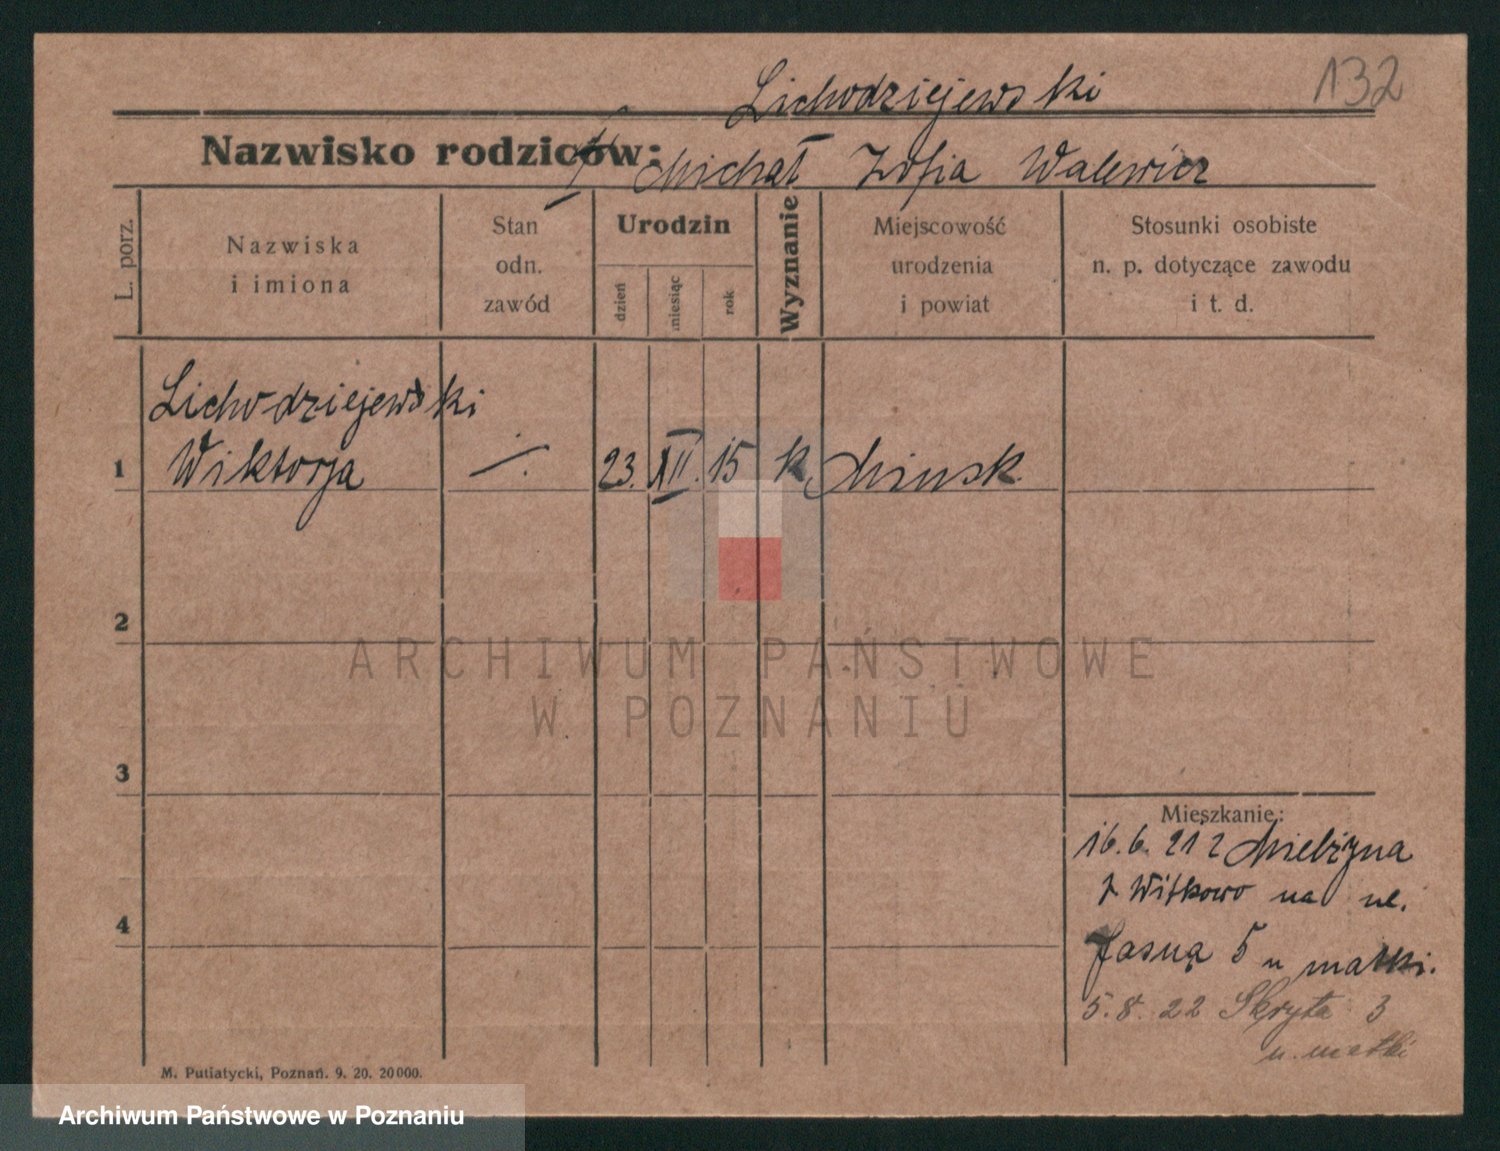 132
Lichodziejewski
Nazwisko rodziców: Michał Zofia Walewicz
L. porz.
Nazwiska
i imiona
Stan
odn.
zawód
Urodzin
dzień
miesiąc
rok
Wyznanie
Miejscowość
urodzenia
i powiat
Stosunki osobiste
n. p. dotyczące zawodu
i t. d.
Lichodziejewski
1 Wiktorja ./. 23. XII. 15 k Minsk.
2
ARCHIWUM PAŃSTWOWE
W POZNANIU
3
Mieszkanie:
16.6.21 z Mielżyna
p. Witkowo na ul.
4
Jasną 5 u matki.
5.8.22 Skryta 3
u. matki
M. Putiatycki, Poznań. 9. 20. 20000.
Archiwum Państwowe w Poznaniu